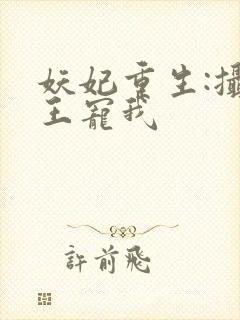 妖妃重生:攝
王寵我
許前飛